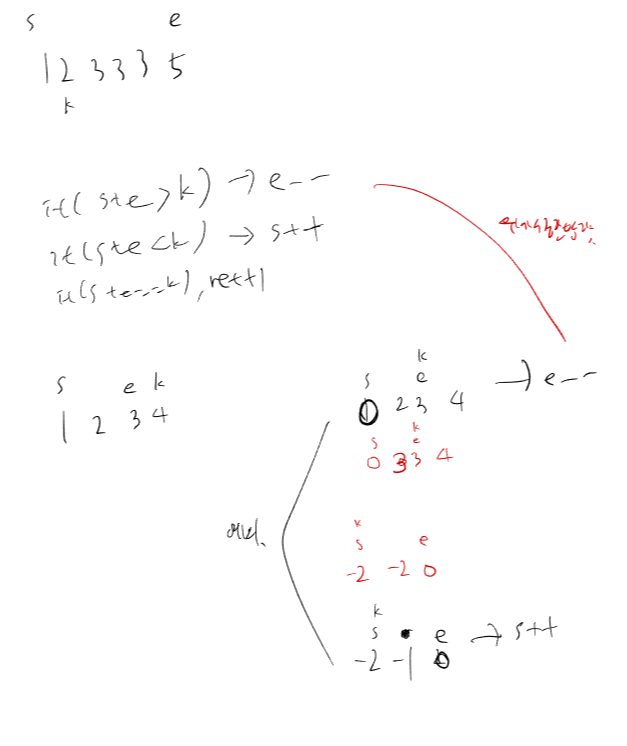 s e
1 2 3 3 3 5
k
if( s+e > k) → e--
if(s+e<k) → s++
if(s+e==k), ret+1
s e k
1 2 3 4
k
s e
0 2 3 4 → e--
k
s e
0 3 3 4
예외.
k
s e
-2 -2 0
k
s e → s++
-2 -1 0